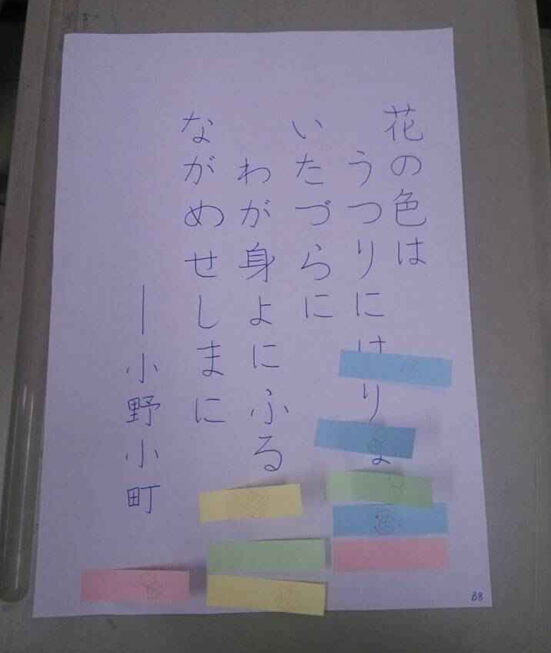 花の色は
うつりにけりな
いたづらに
わが身よにふる
ながめせしまに
—小野小町
B8